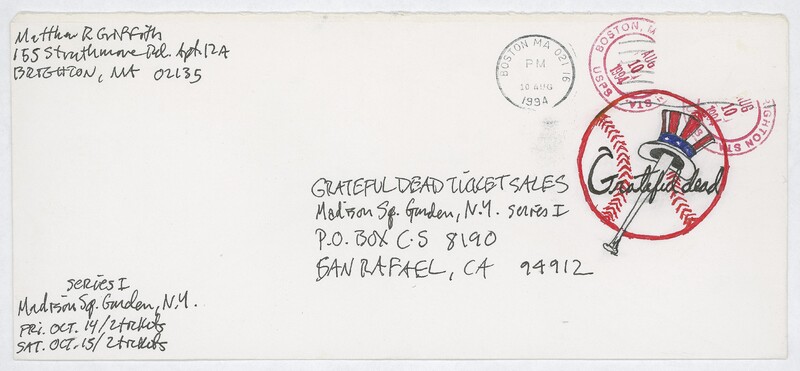 Matthew R Griffith
155 Strathmore Rd. Apt. 12A
BRIGHTON, MA 02135
BOSTON MA 02116
PM
10 AUG
1994
BOSTON, MA
AUG
10
1994
USPS
STA.
AUG
10
1994
BRIGHTON STA
Grateful dead
GRATEFUL DEAD TICKET SALES
Madison Sq. Garden, N.Y. series I
P.O. BOX C-S 8190
SAN RAFAEL, CA 94912
SERIES I
Madison Sq. Garden, N.Y.
FRI. OCT. 14/2 tickets
SAT. OCT. 15/2 tickets